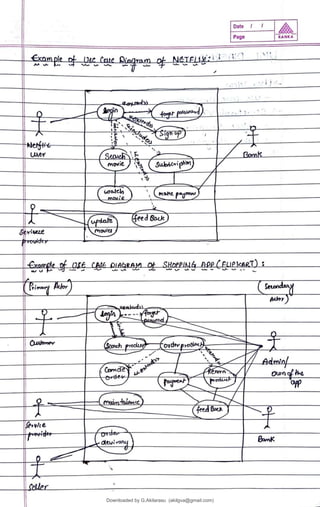 Date / /
Page
KANKA
Example of Use Case Diagram of NETFLIX:
<<extends>>
login
forgot password
Sign up
Netflix
User
Search
movie
Subscription
Bank
watch
movie
make payment
update
movies
feed Back
provider
Example of USE CASE DIAGRAM OF SHOPPING APP (FLIPKART) :
(Primary Actor)
(Secondary
Actor)
login
forgot
Customer
Search product
order product
Admin/
Own of the
app
Cancle
order
payment
Return
product
maintainence
feed Back
Service
provider
Bank
order
Seller
Downloaded by G.Akilarasu (akilgva@gmail.com)